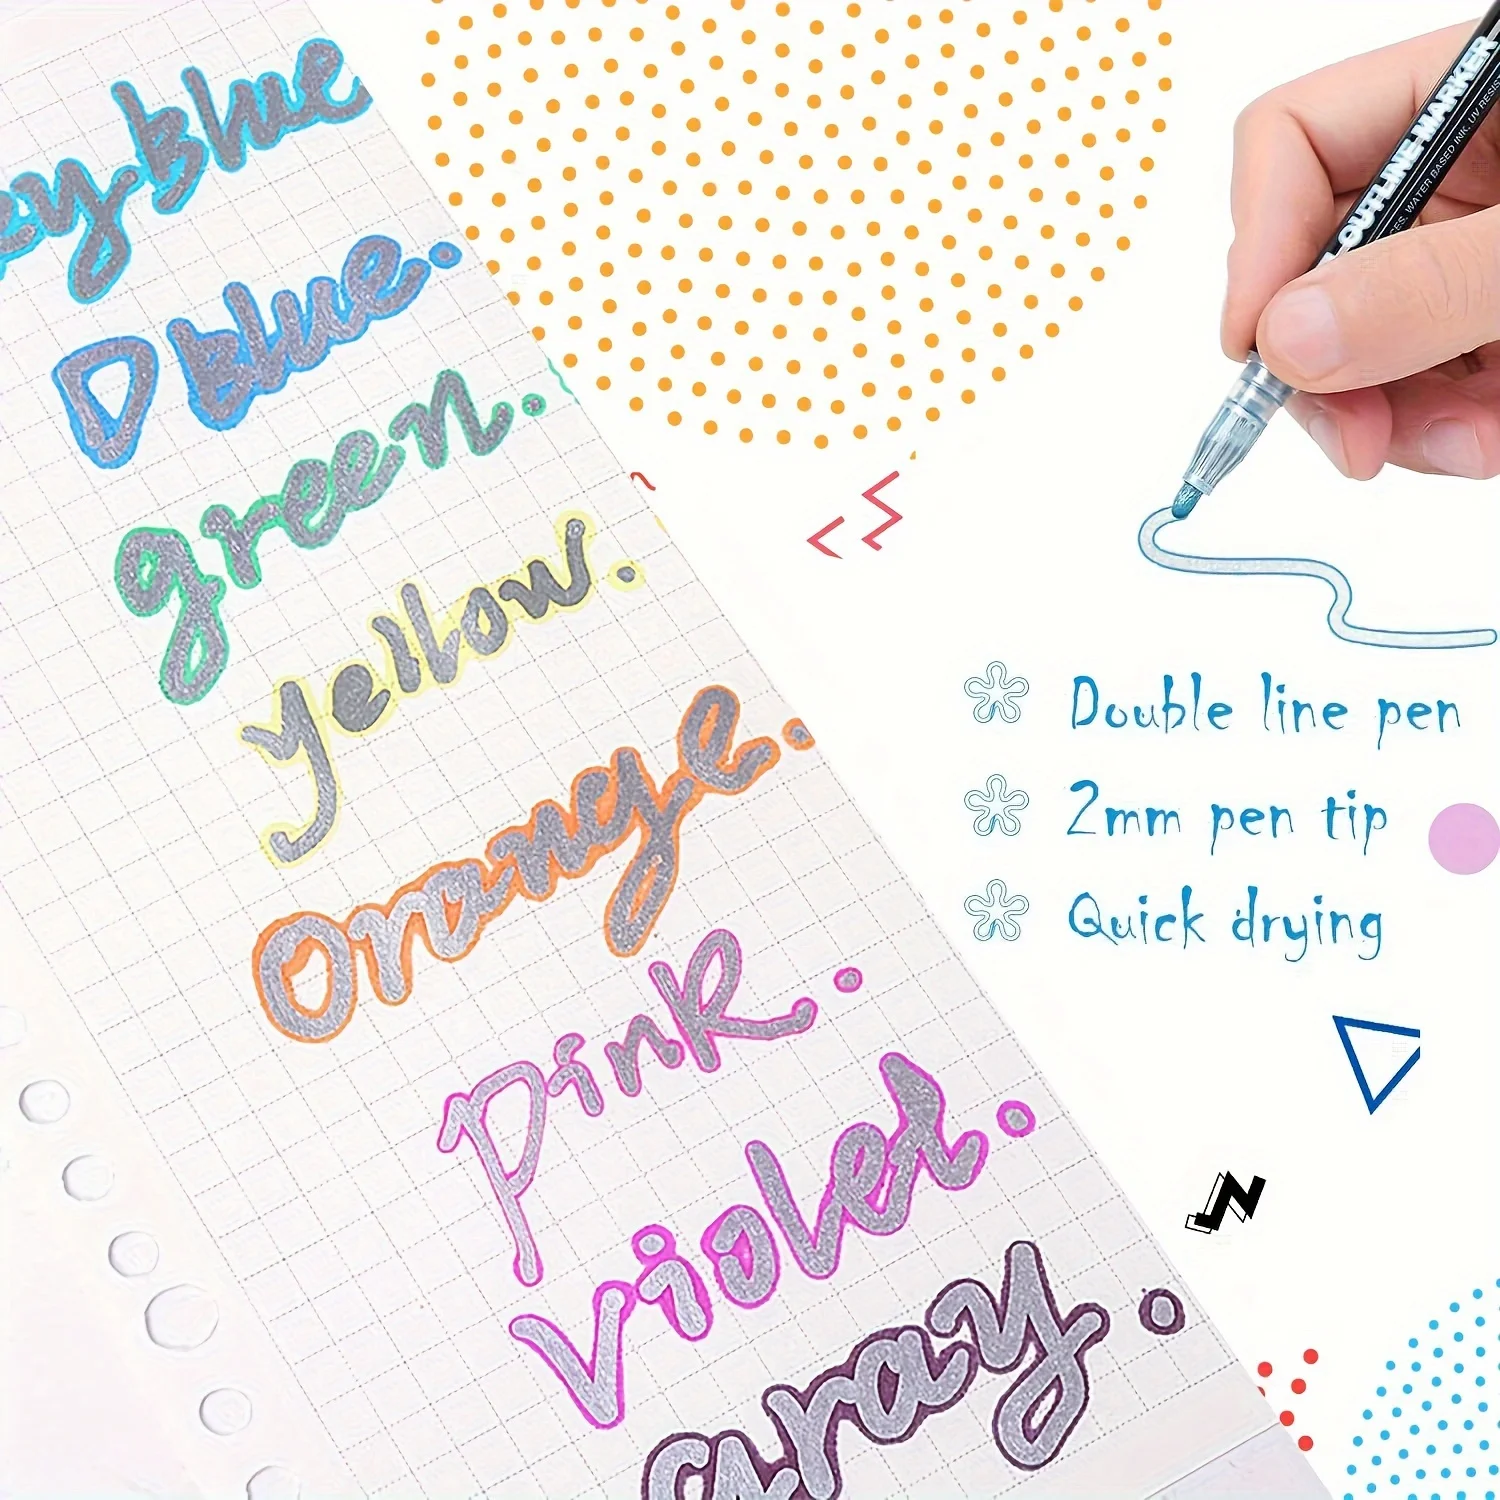 ey-Blue
D Blue.
green.
yellow.
orange.
pink.
violet.
Gray.
OUTLINE MARKER
CES. WATER BASED INK. UV RESIST
Double line pen
2mm pen tip
Quick drying
N